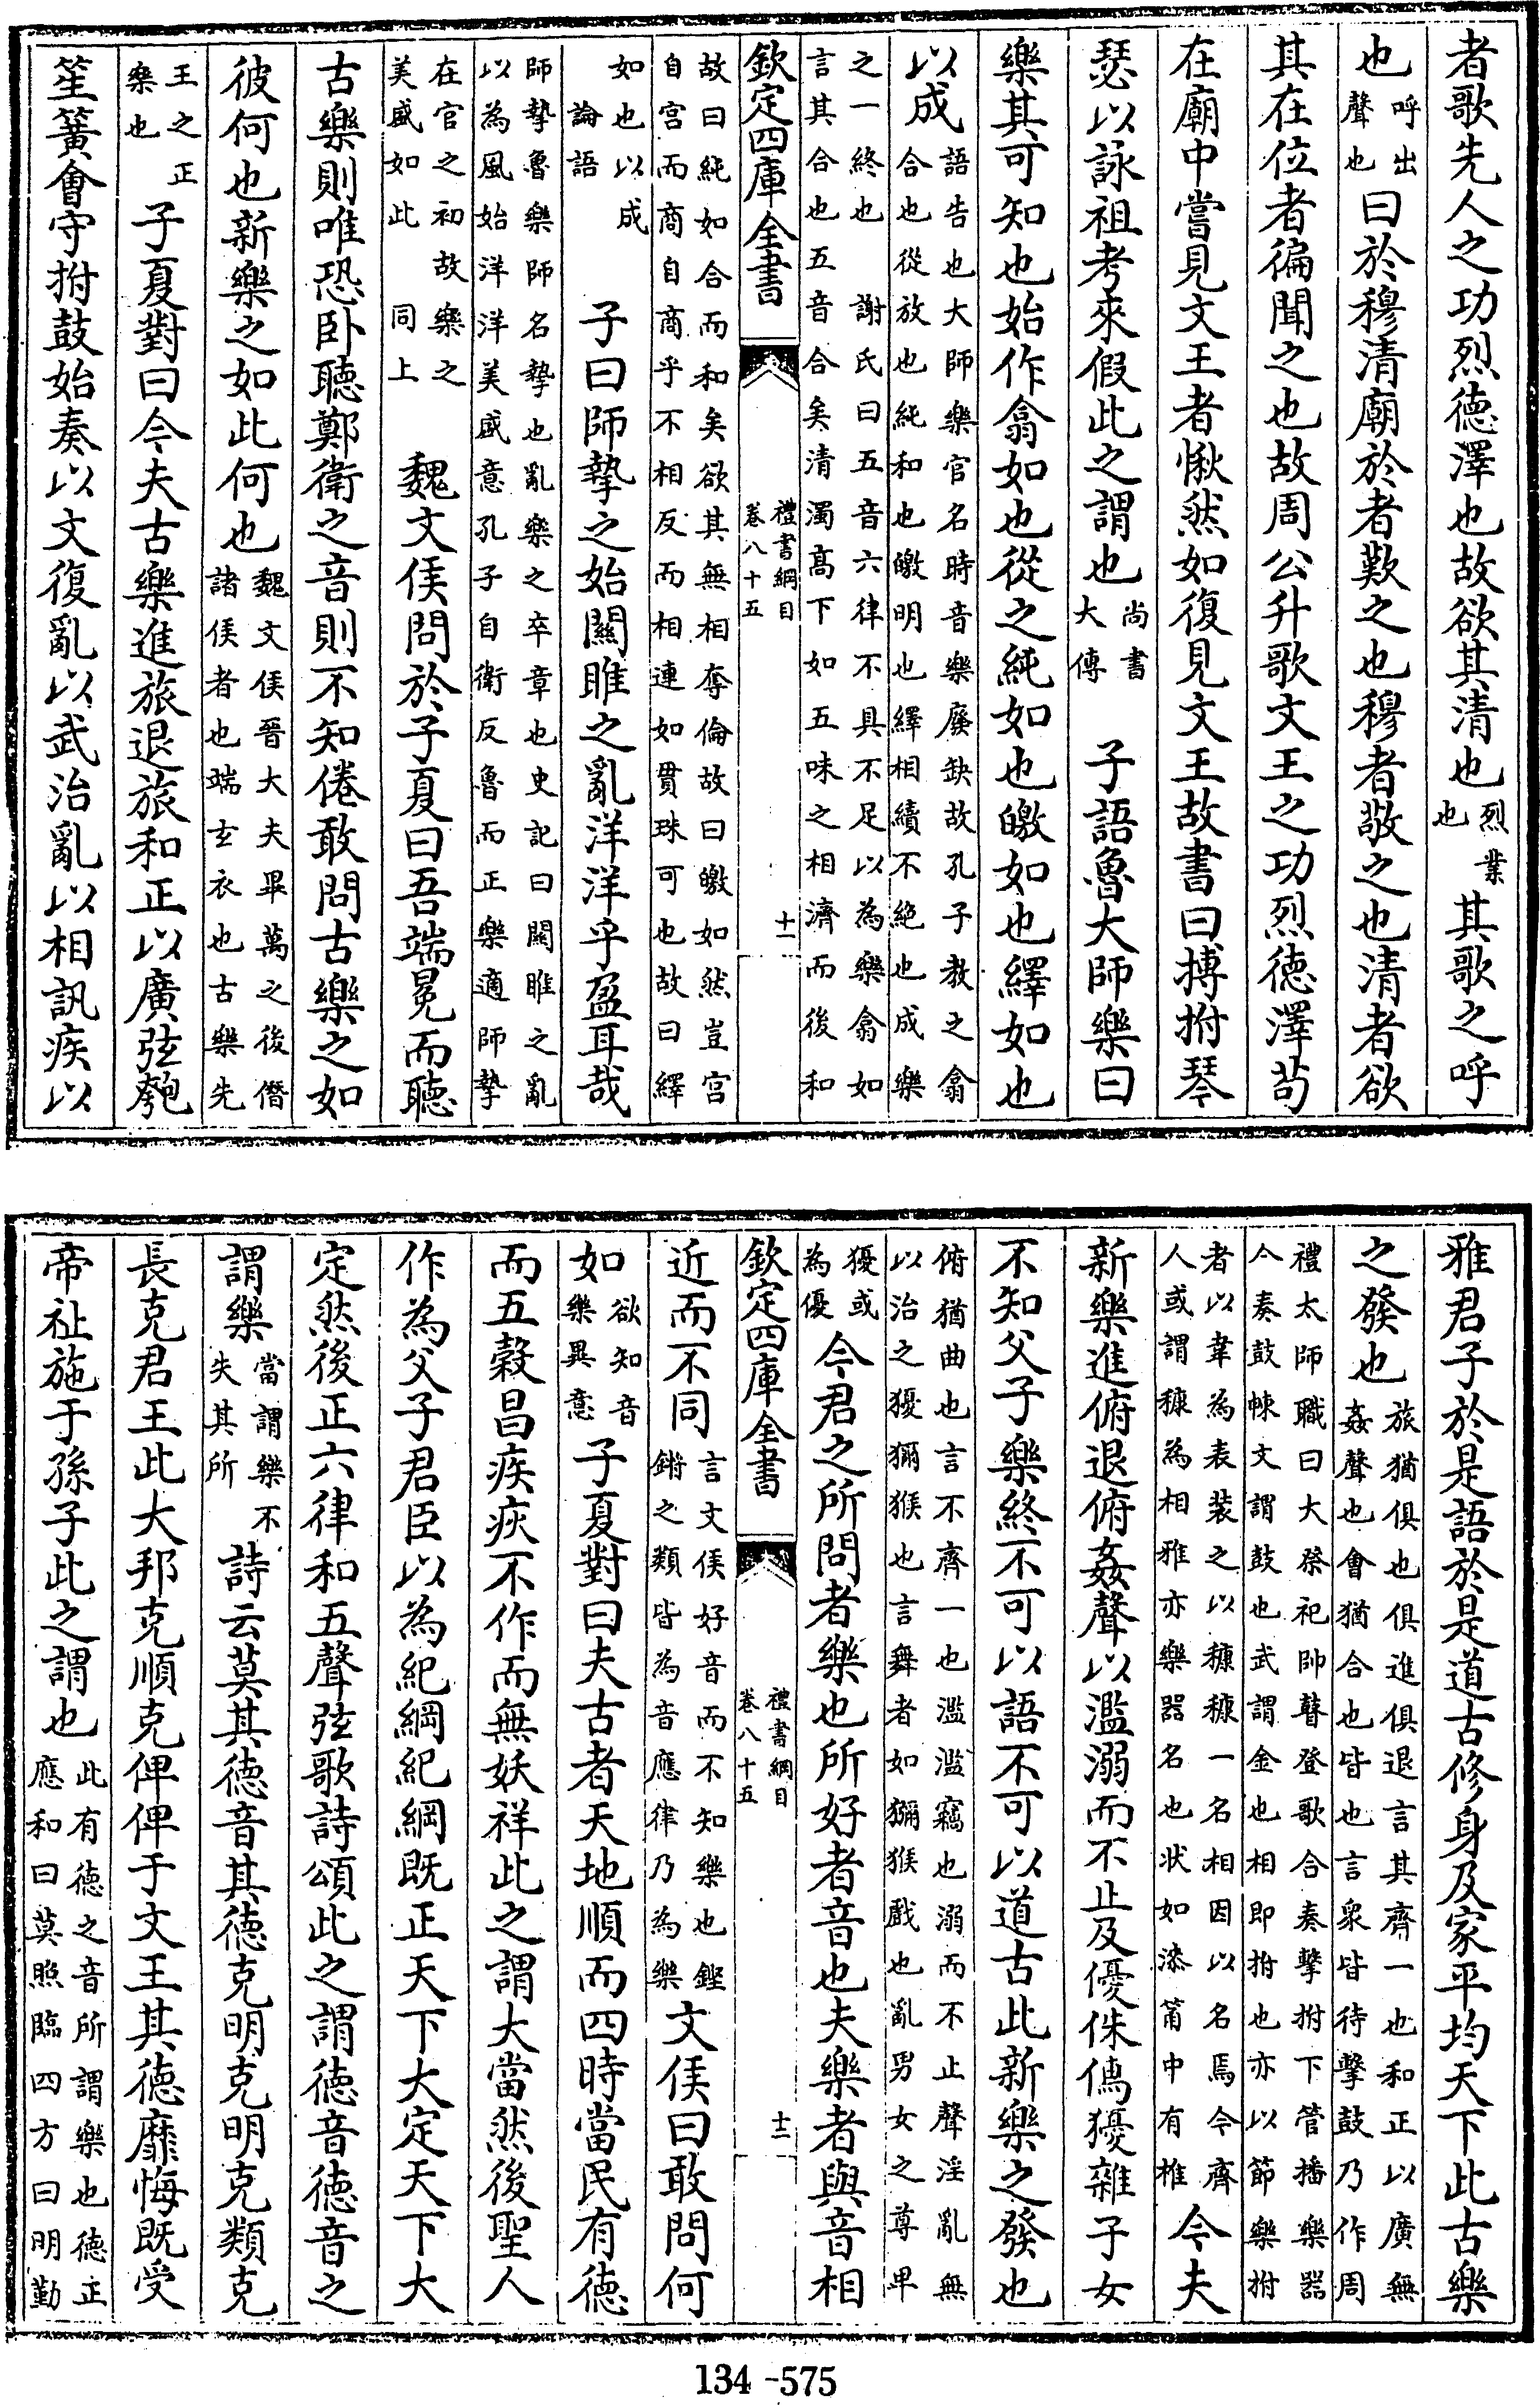 者歌先人之功烈德澤也故欲其清也烈業也其歌之呼
也呼出聲也曰於穆清廟於者歎之也穆者敬之也清者欲
其在位者徧聞之也故周公升歌文王之功烈德澤苟
在廟中嘗見文王者愀然如復見文王故書曰搏拊琴
瑟以詠祖考來假此之謂也尚書大傳　子語魯大師樂曰
樂其可知也始作翕如也從之純如也皦如也繹如也
以成語告也大師樂官名時音樂廢缺故孔子教之翕合也從放也純和也皦明也繹相續不絶也成樂
之一終也　謝氏曰五音六律不具不足以為樂翕如言其合也五音合矣清濁高下如五味之相濟而後和
欽定四庫全書　禮書綱目卷八十五　十一
故曰純如合而和矣欲其無相奪倫故曰皦如然豈宫自宫而商自商乎不相反而相連如貫珠可也故曰繹
如也以成論語　子曰師摯之始關雎之亂洋洋乎盈耳哉
師摯魯樂師名摯也亂樂之卒章也史記曰關雎之亂以為風始洋洋美盛意孔子自衛反魯而正樂適師摯
在官之初故樂之美盛如此同上　魏文侯問於子夏曰吾端冕而聽
古樂則唯恐卧聽鄭衛之音則不知倦敢問古樂之如
彼何也新樂之如此何也魏文侯晉大夫畢萬之後僭諸侯者也端玄衣也古樂先
王之正樂也　子夏對曰今夫古樂進旅退旅和正以廣弦匏
笙簧會守拊鼓始奏以文復亂以武治亂以相訊疾以
雅君子於是語於是道古修身及家平均天下此古樂
之發也旅猶俱也俱進俱退言其齊一也和正以廣無姦聲也會猶合也皆也言衆皆待擊鼓乃作周
禮太師職曰大祭祀帥瞽登歌合奏擊拊下管播樂器令奏鼓㯥文謂鼓也武謂金也相即拊也亦以節樂拊
者以韋為表装之以穅穅一名相因以名焉今齊人或謂穅為相雅亦樂器名也状如漆筩中有椎今夫
新樂進俯退俯姦聲以濫溺而不止及優侏儁獶雜子女
不知父子樂終不可以語不可以道古此新樂之發也
俯猶曲也言不齊一也濫濫竊也溺而不止聲淫亂無以治之獶獮猴也言舞者如獮猴戲也亂男女之尊卑
獶或為優今君之所問者樂也所好者音也夫樂者與音相
欽定四庫全書　禮書綱目卷八十五　十二
近而不同言文侯好音而不知樂也鏗鏘之類皆為音應律乃為樂文侯曰敢問何
如欲知音樂異意子夏對曰夫古者天地順而四時當民有德
而五穀昌疾疢不作而無妖祥此之謂大當然後聖人
作為父子君臣以為紀綱紀綱既正天下大定天下大
定然後正六律和五聲弦歌詩頌此之謂德音德音之
謂樂當謂樂不失其所詩云莫其德音其德克明克明克類克
長克君王此大邦克順克俾俾于文王其德靡悔既受
帝祉施于孫子此之謂也此有德之音所謂樂也德正應和曰莫照臨四方曰明勤
134-575